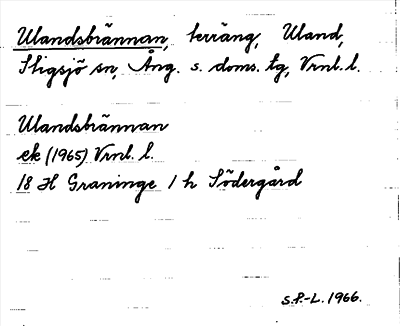 Ulandsbrännan, terräng, Uland,
Stigsjö sn, Ång. s. doms. tg, Vrnl. l.
Ulandsbrännan
ek (1965) Vrnl. l.
18 H Graninge 1 h Södergård
S.P.-L. 1966.